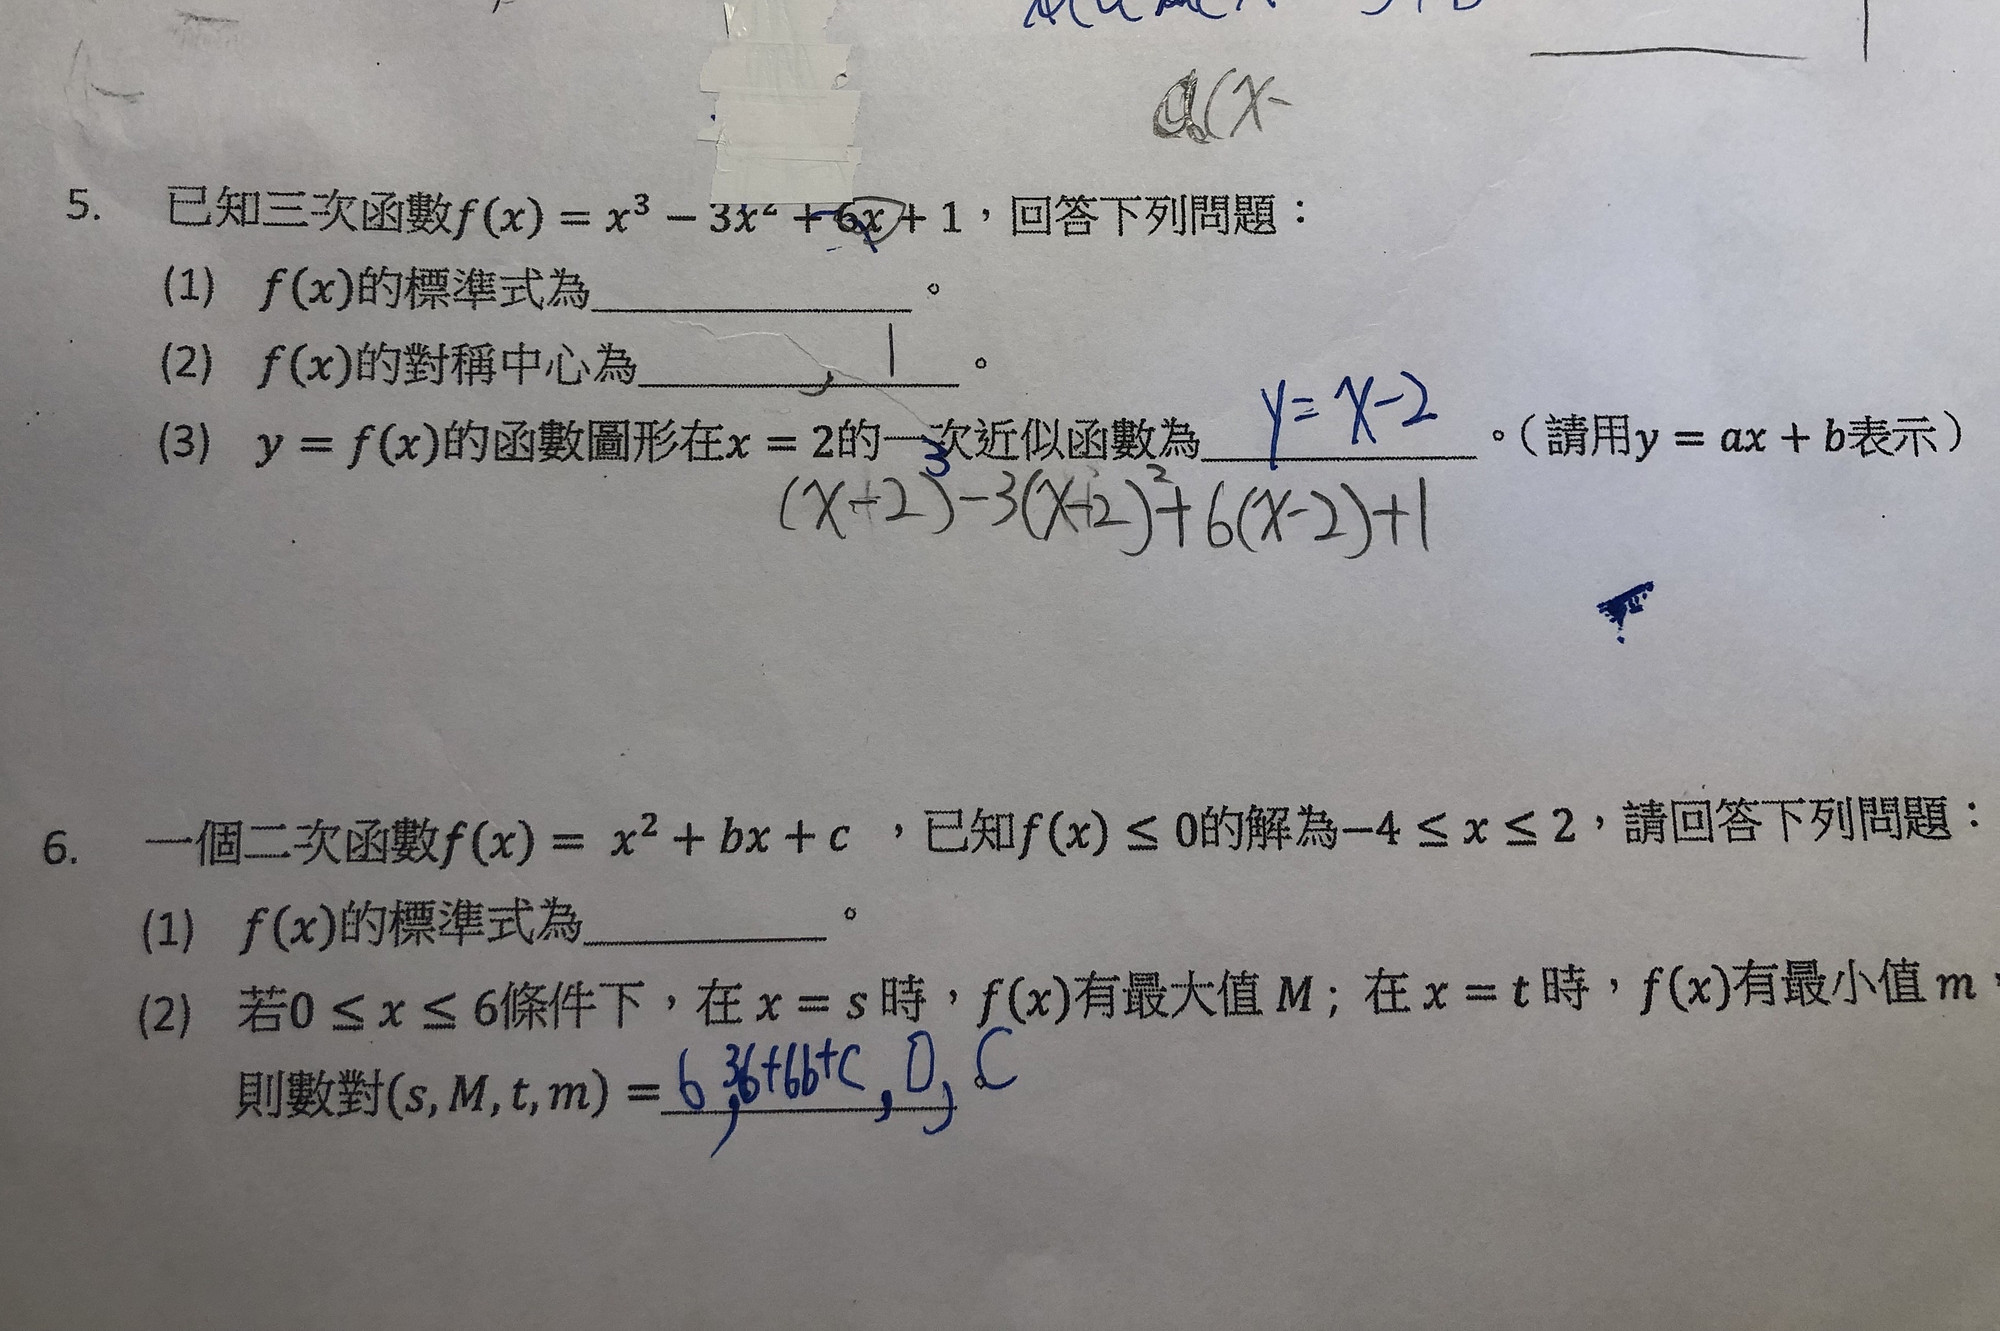 a(x-
5. 已知三次函數f(x) = x³ − 3x² + 6x + 1，回答下列問題：
(1) f(x)的標準式為____________。
(2) f(x)的對稱中心為______,__1__。
(3) y = f(x)的函數圖形在x = 2的一次近似函數為 y = x-2 。（請用y = ax + b表示）
(x+2)³-3(x+2)²+6(x-2)+1
6. 一個二次函數f(x) = x² + bx + c ，已知f(x) ≤ 0的解為−4 ≤ x ≤ 2，請回答下列問題：
(1) f(x)的標準式為__________。
(2) 若0 ≤ x ≤ 6條件下，在 x = s 時，f(x)有最大值 M；在 x = t 時，f(x)有最小值 m，
則數對(s, M, t, m) = 6,36+6b+c,0,c。